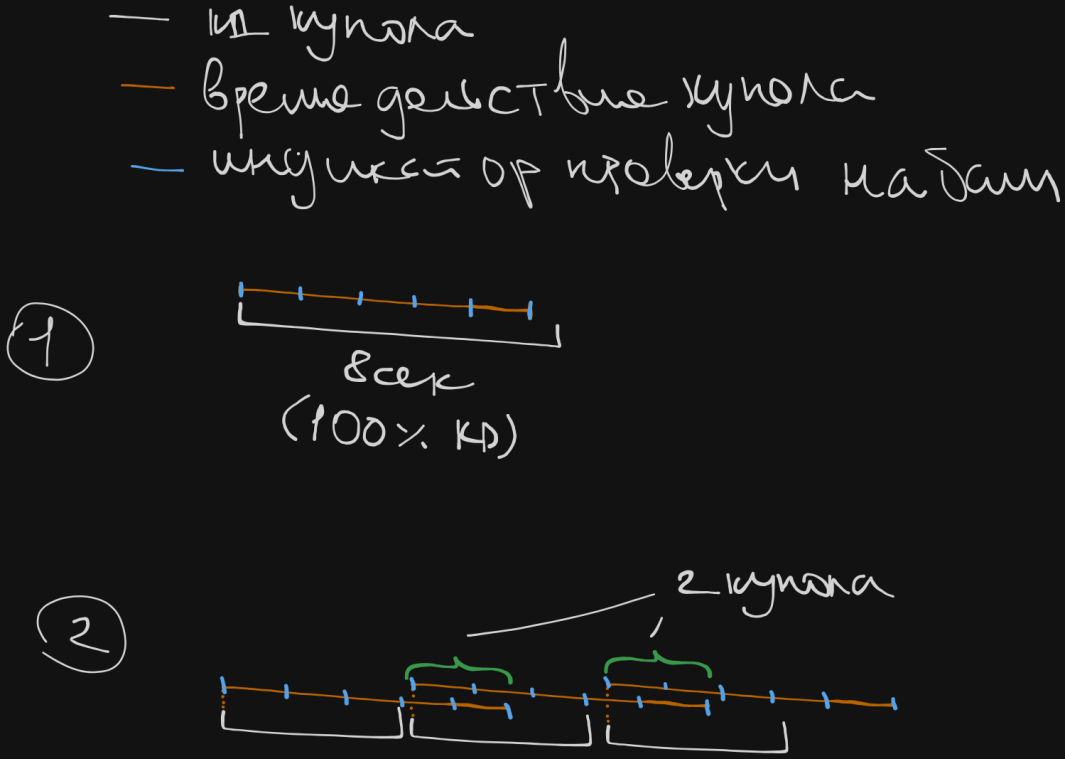 — кд купола
— время действие купола
— индикатор проверки на бап
1
8сек
(100% КD)
2 купола
2